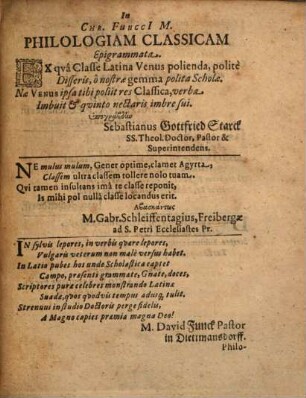 In
CHR. FUNCCI M.
PHILOLOGIAM CLASSICAM
Epigrammata.
EX quâ Classe Latina Venus polienda, politè
Disseris, ô nostræ gemma polita Scholæ.
Næ VENUS ipsa tibi poliit res Classica, verba
Imbuit & quinto nectaris imbre sui.
Sebastianus Gottfried Starck
SS. Theol. Doctor, Pastor &
Superintendens.
NE mulus mulum, Gener optime, clamet Agyrta;
Classem ultra classem tollere nolo tuam.
Qvi tamen insultans imâ te classe reponit,
Is mihi pol nullâ classe locandus erit.
M. Gabr. Schleiffentagius, Freibergæ
ad S. Petri Ecclesiastes Pr.
IN sylvis lepores, in verbis quære lepores,
Vulgaris veterum non malè versus habet.
In Latio pubes hos unde Scholastica captet
Campo, præsenti grammate, Gnate, doces,
Scriptores puræ celebres monstrando Latinæ
Suadæ, quos quodvis tempus adusq; tulit.
Strenuus in studio Doctoris perge fidelis,
A Magno capies præmia magna Deo!
M. David Funck Pastor
in Dittmansdorff.
Philo-